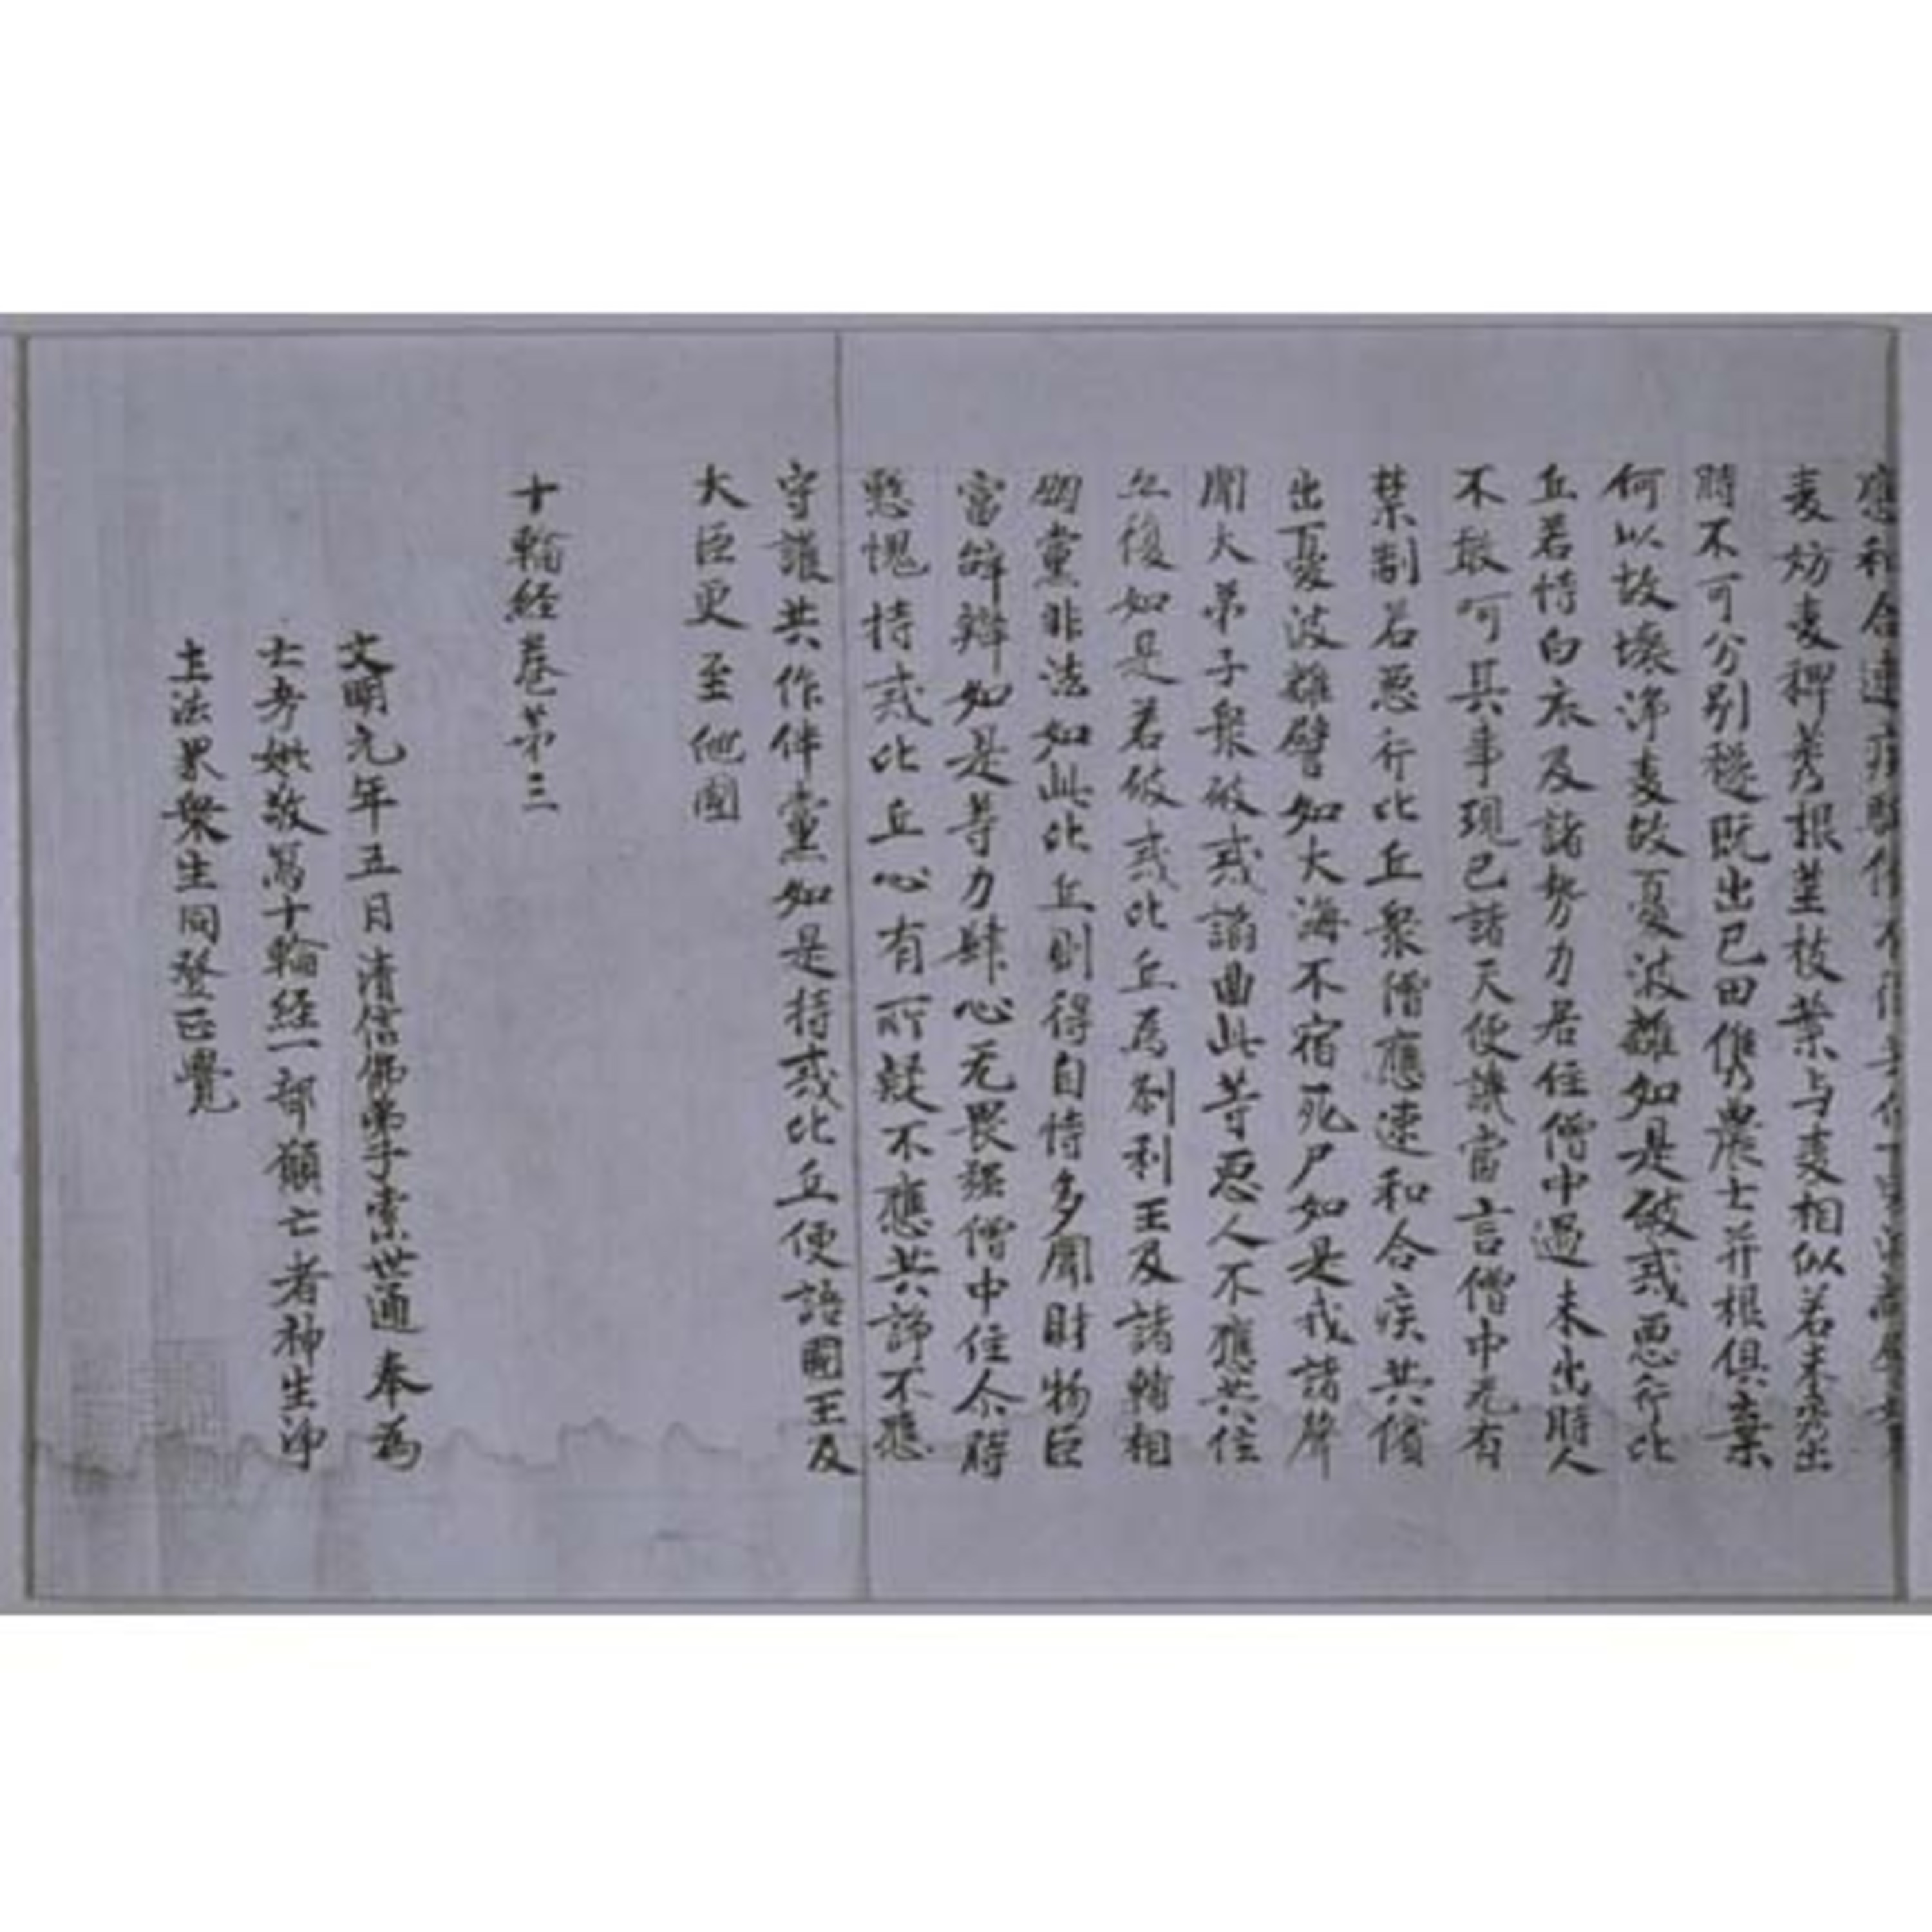 應和合連
麦妨麦稗莠根莖枝葉与麦相似若未秀出
時不可分別穟既出已田儁農士并根俱棄
何以故壞淨麦故憂波離如是破戒惡行比
丘若恃白衣及諸勢力若住僧中過未出時人
不敢呵其事現已諸天便譏當言僧中无有
禁制若惡行比丘眾僧應速和合疾共擯
出憂波離譬如大海不宿死尸如是我諸聲
聞大弟子眾破戒諂曲此等惡人不應共住
復如是若破戒比丘為剎利王及諸輔相
朋黨非法如此比丘則得自恃多聞財物臣
富辭辯如是等力肆心无畏強僧中住介時
慙愧持戒比丘心有所疑不應共諍不應
守護共作伴黨如是持戒比丘便語國王及
大臣更至他國
十輪経卷第三
文明元年五月清信佛弟子索世通奉為
亡考妣敬寫十輪経一部願亡者神生淨
土法界眾生同登正覺